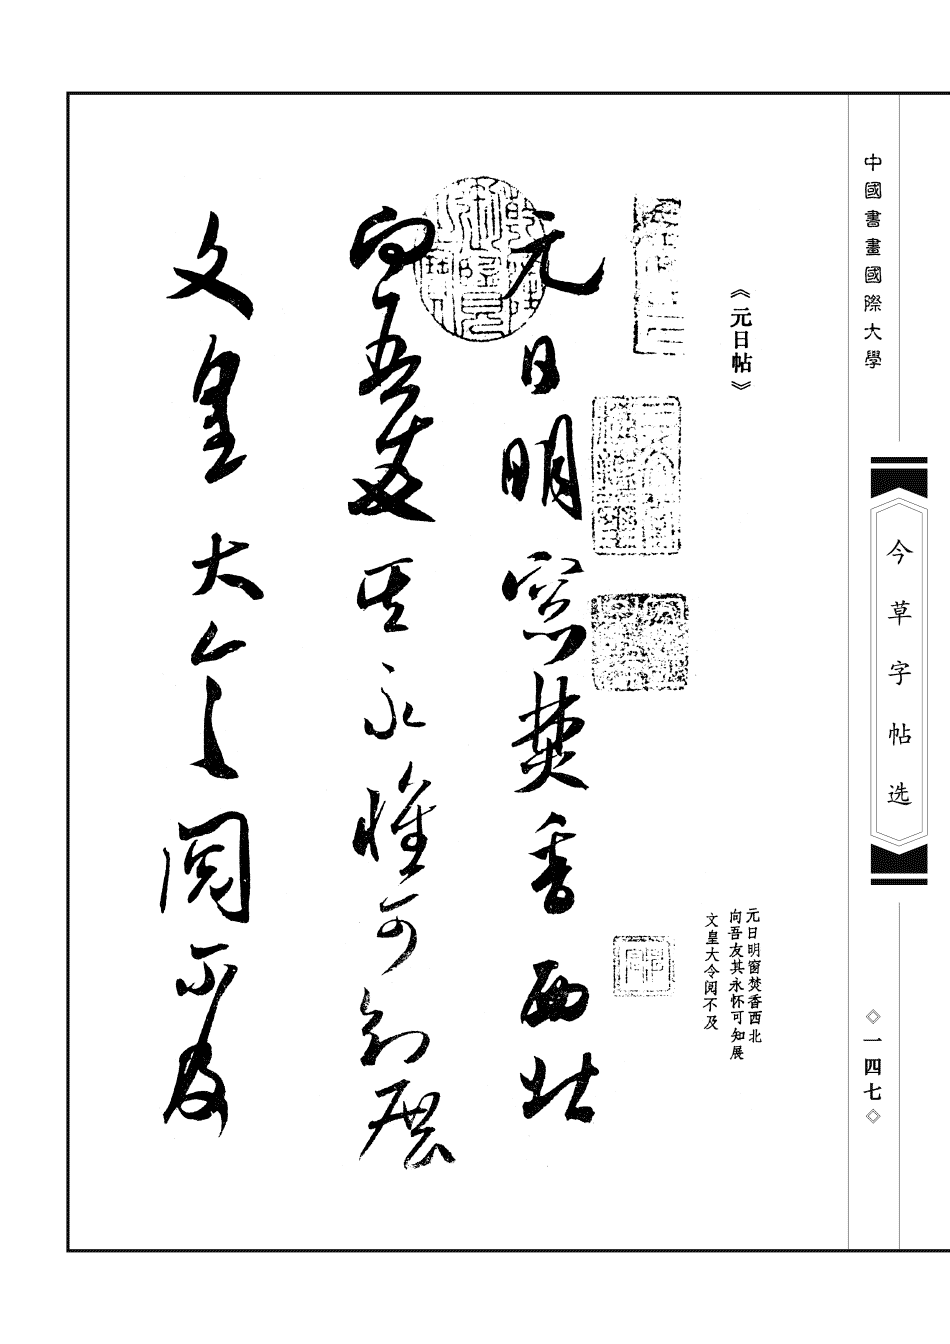 中國書畫國際大學
今草字帖选
◇一四七◇
《元日帖》
元日明窗焚香西北
向吾友其永怀可知展
文皇大令阅不及
元日明窓焚香西北
向吾友其永懷可知展
文皇大令閱不及